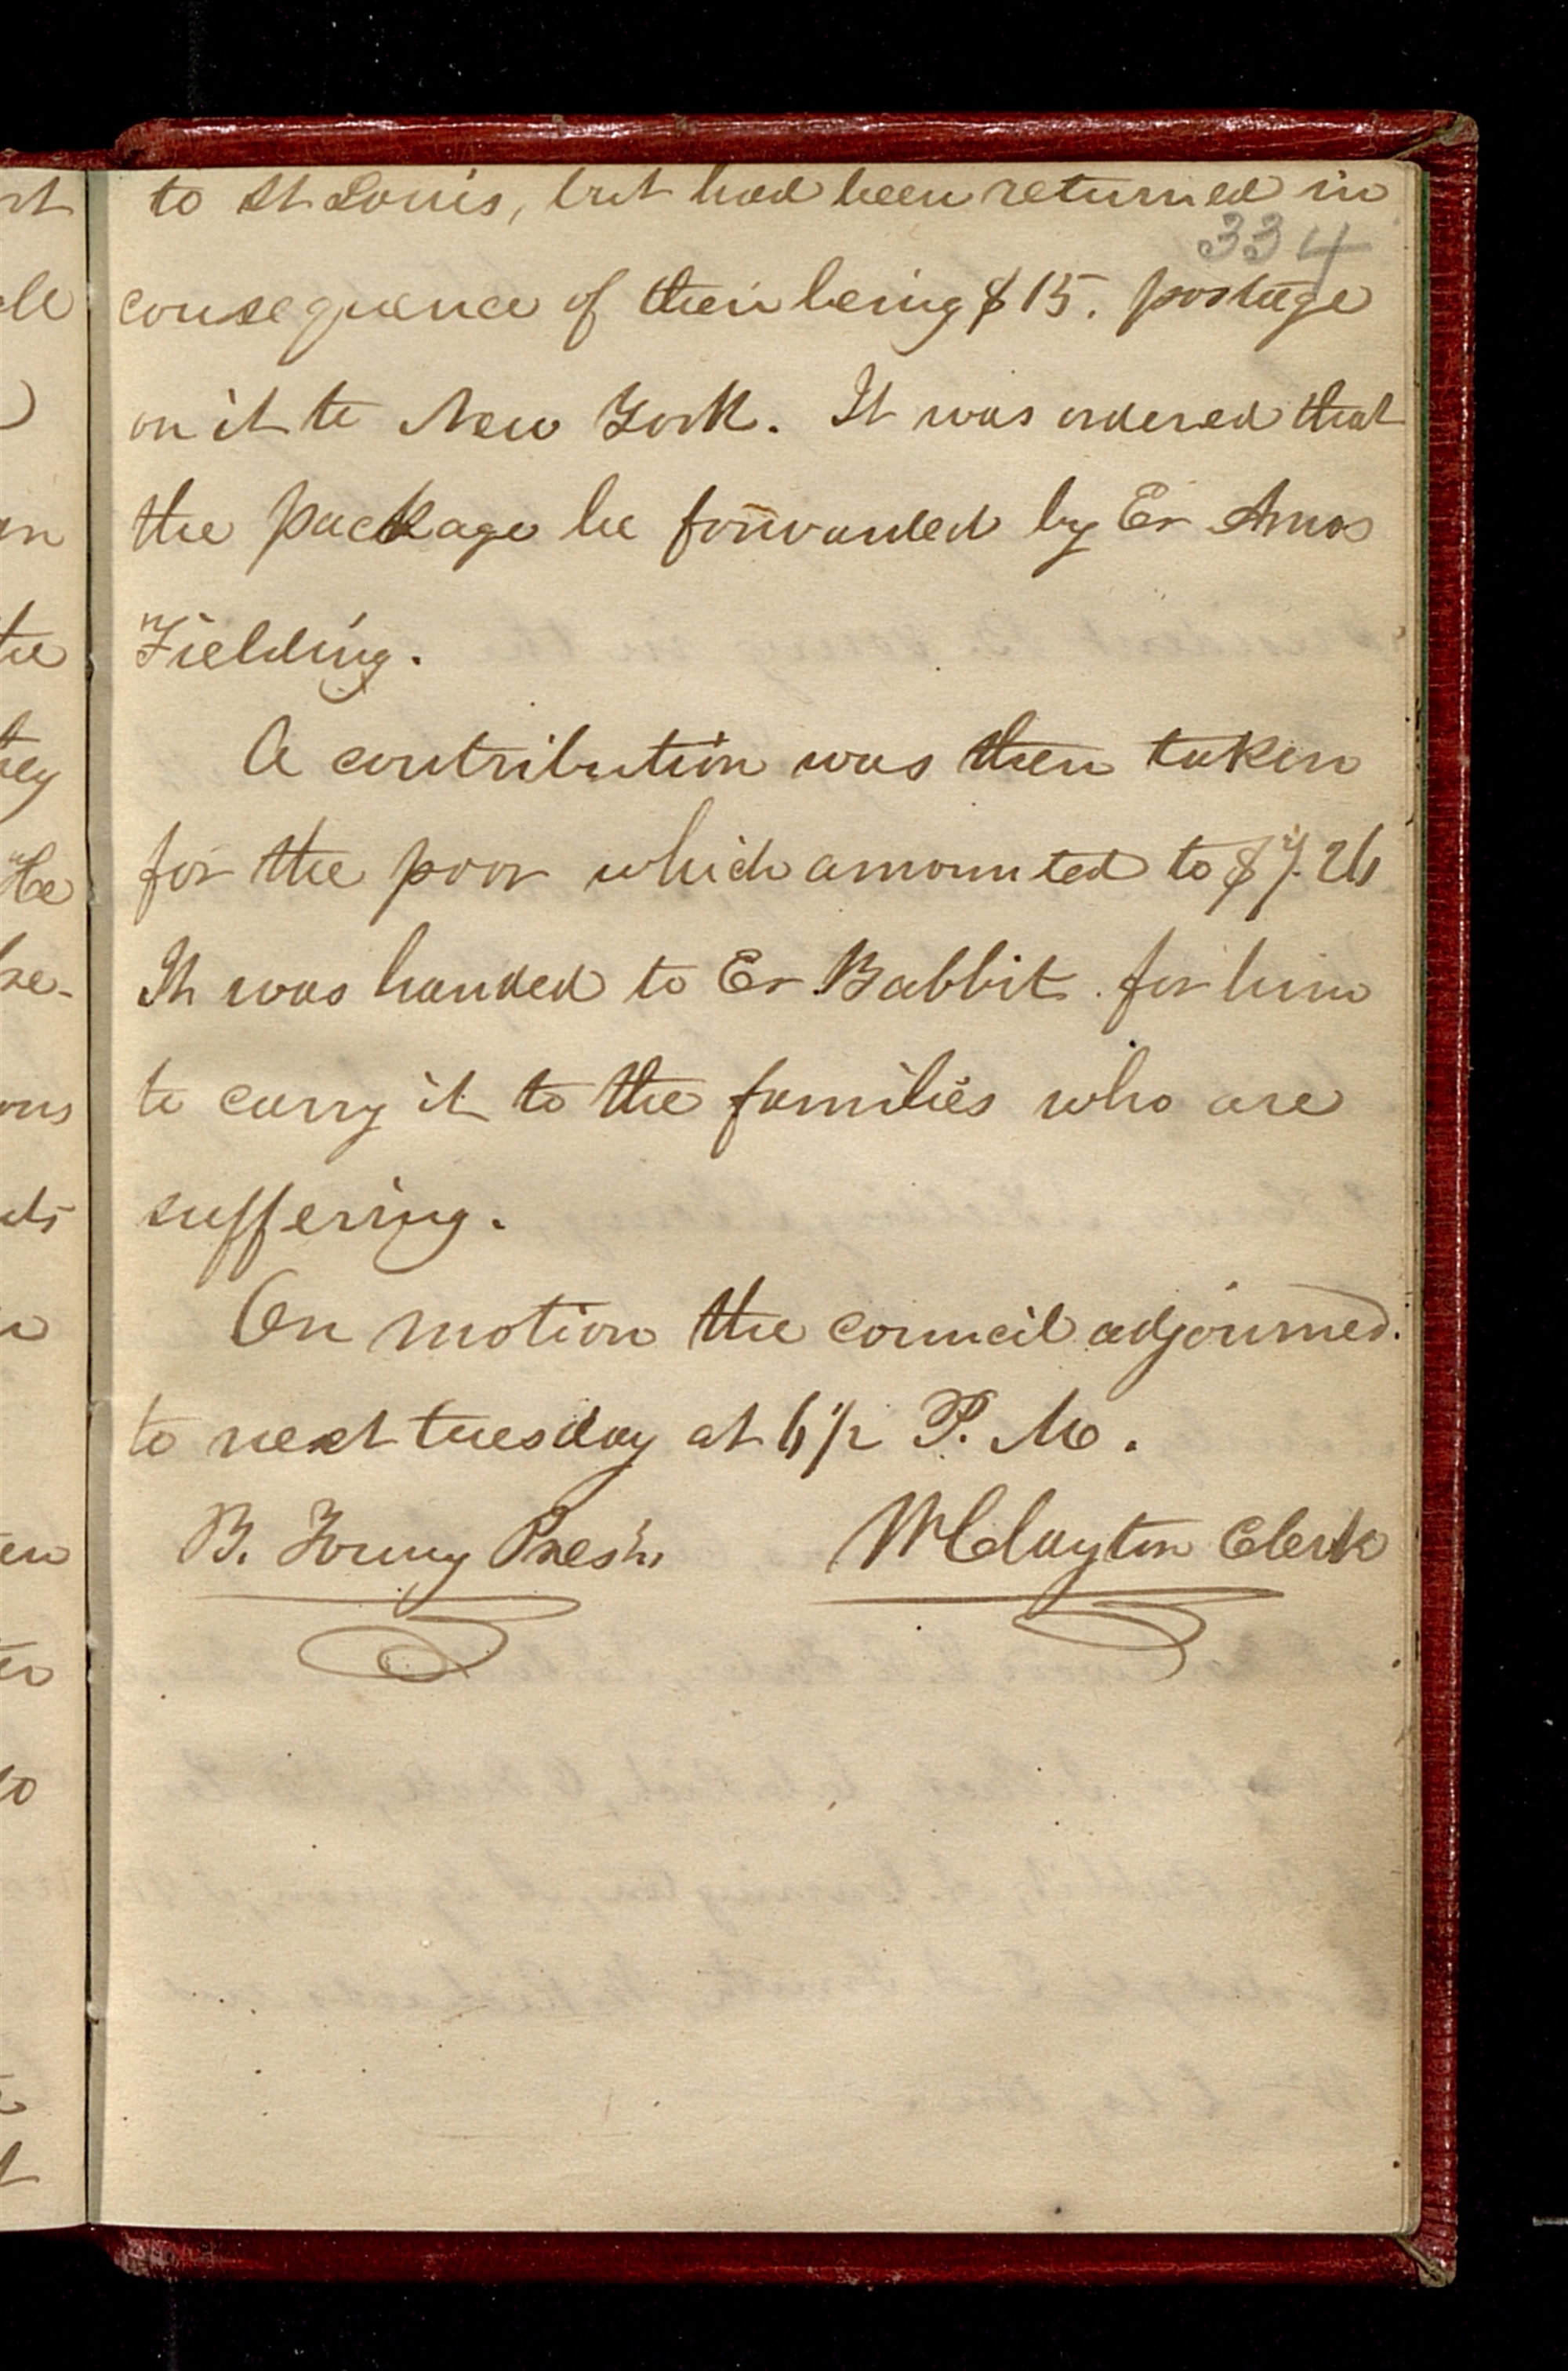 to St Louis, but had been returned in
334
consequence of their being $15. postage
on it to New York. It was ordered that
the package be forwarded by Er Amos
Fielding.
A contribution was then taken
for the poor which amounted to $7.26
It was handed to Er Babbit for him
to carry it to the families who are
suffering.
On motion the council adjourned.
to next tuesday at 6 1/2 P. M.
B. Young Pres't,
WClayton Clerk